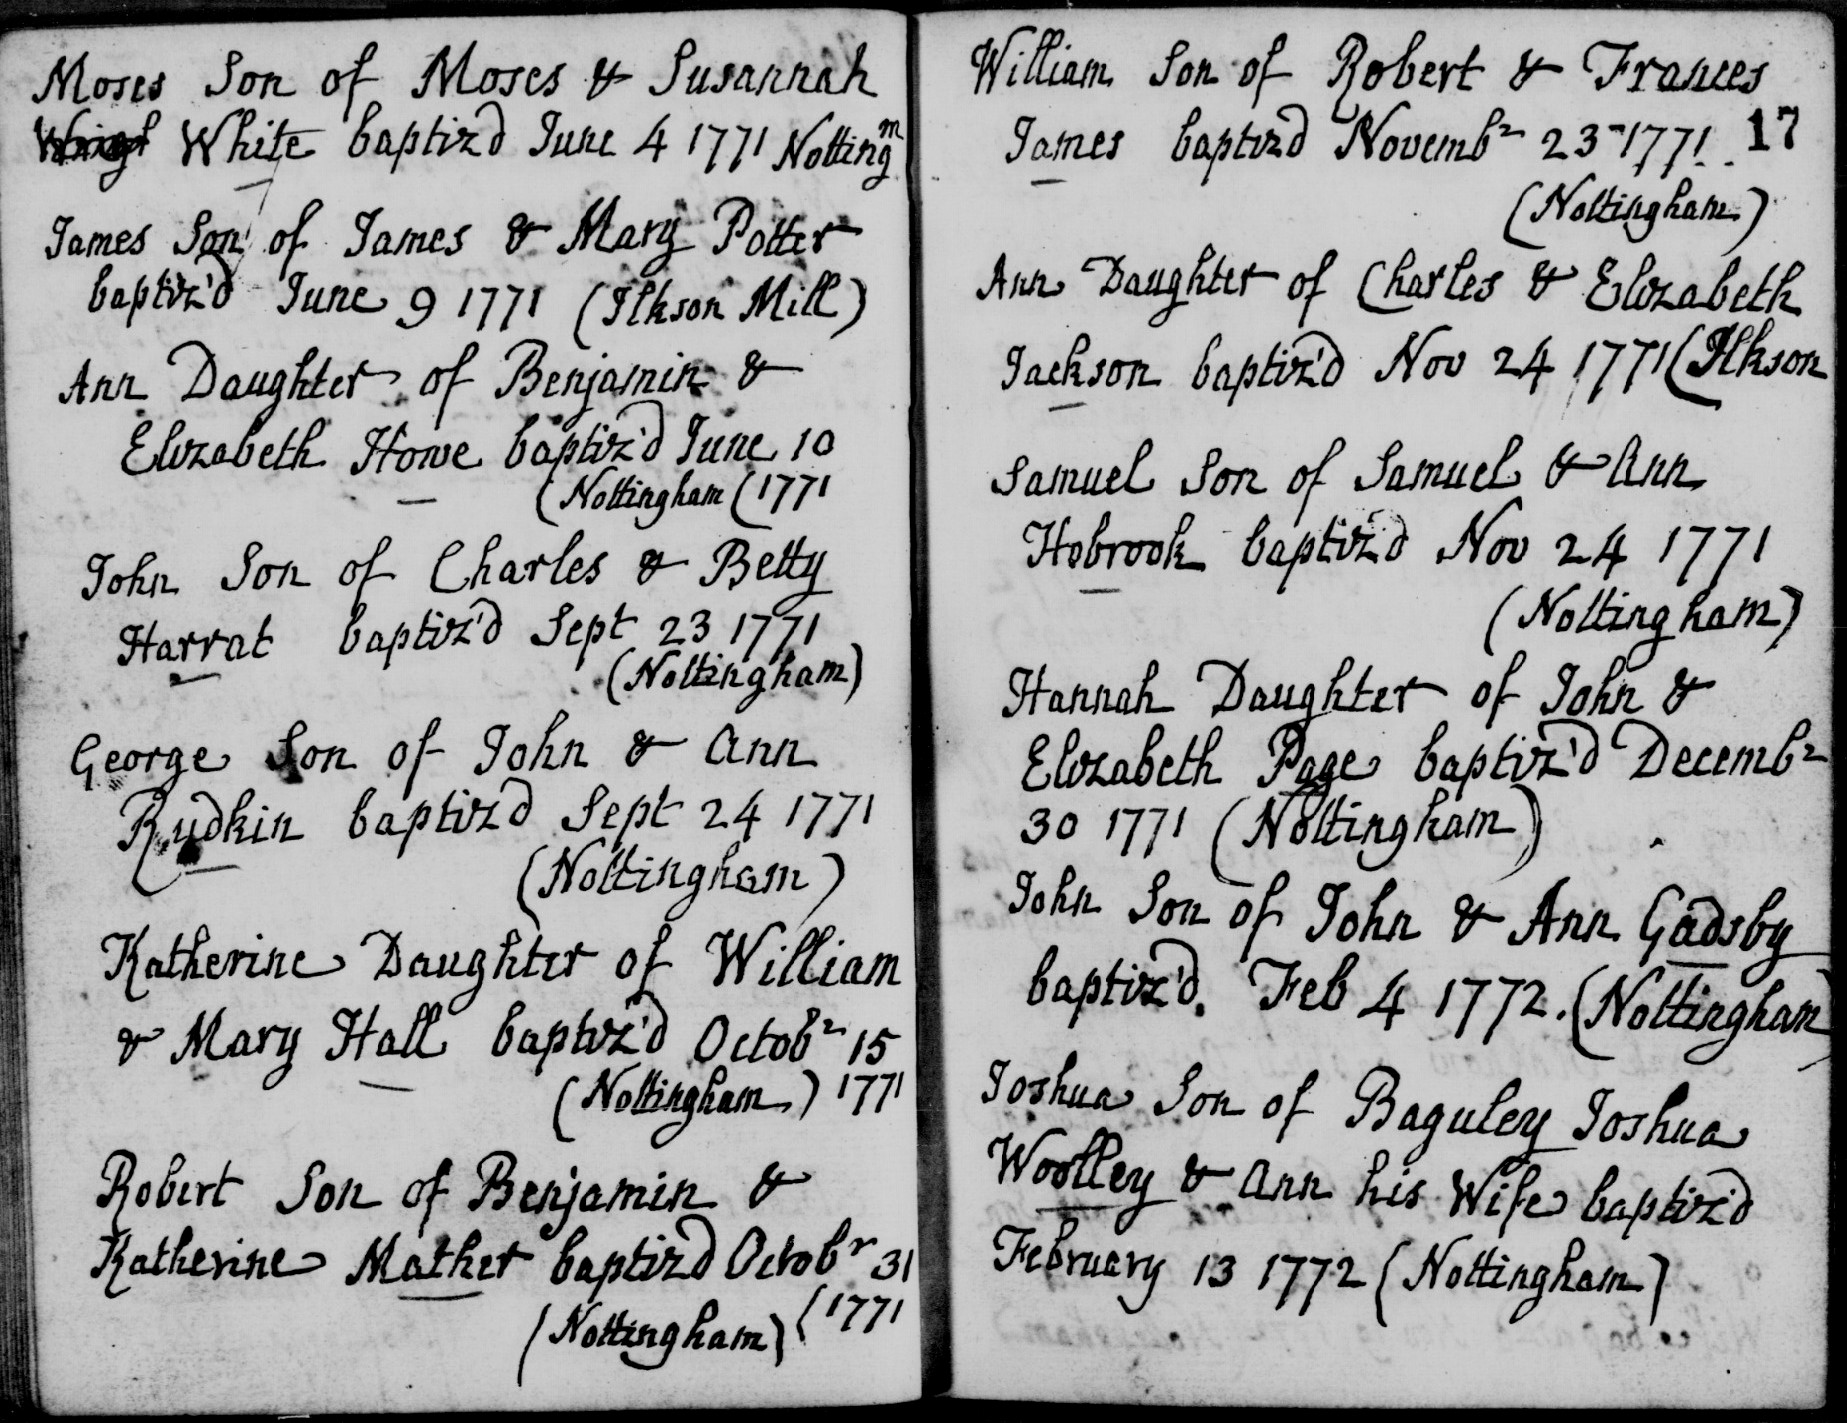 Moses Son of Moses & Susannah
White baptiz'd June 4 1771 Notting^m
James Son of James & Mary Potter
baptiz'd June 9 1771 (Ilkson Mill)
Ann Daughter of Benjamin &
Elizabeth Howe baptiz'd June 10
(Nottingham (1771
John Son of Charles & Betty
Harrat baptiz'd Sept 23 1771
(Nottingham)
George Son of John & Ann
Rudkin baptiz'd Sept 24 1771
(Nottingham)
Katherine Daughter of William
& Mary Hall baptiz'd Octob^r 15
(Nottingham) 1771
Robert Son of Benjamin &
Katherine Mather baptiz'd Octob^r 31
(Nottingham) (1771
William Son of Robert & Frances
James baptiz'd Novemb^r 23-1771. 17
(Nottingham)
Ann Daughter of Charles & Elizabeth
Jackson baptiz'd Nov 24 1771 (Ilkson
Samuel Son of Samuel & Ann
Hobrook baptiz'd Nov 24 1771
(Nottingham)
Hannah Daughter of John &
Elizabeth Page baptiz'd Decemb^r
30 1771 (Nottingham)
John Son of John & Ann Gadsby
baptiz'd. Feb 4 1772. (Nottingham)
Joshua Son of Baguley Joshua
Woolley & Ann his Wife baptiz'd
February 13 1772 (Nottingham)